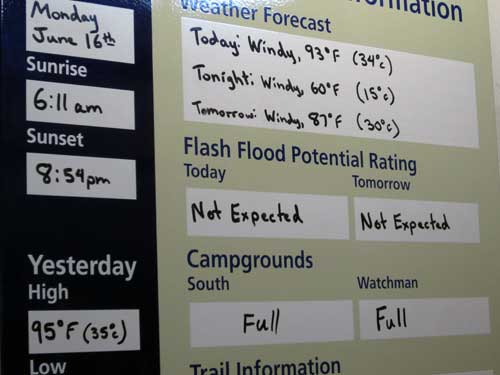 Monday
June 16th
Sunrise
6:11 am
Sunset
8:54pm
Yesterday
High
95°F (35°c)
Low
Information
Weather Forecast
Today: Windy, 93°F (34°c)
Tonight: Windy, 60°F (15°c)
Tomorrow: Windy, 87°F (30°c)
Flash Flood Potential Rating
Today Tomorrow
Not Expected Not Expected
Campgrounds
South Watchman
Full Full
Trail Information